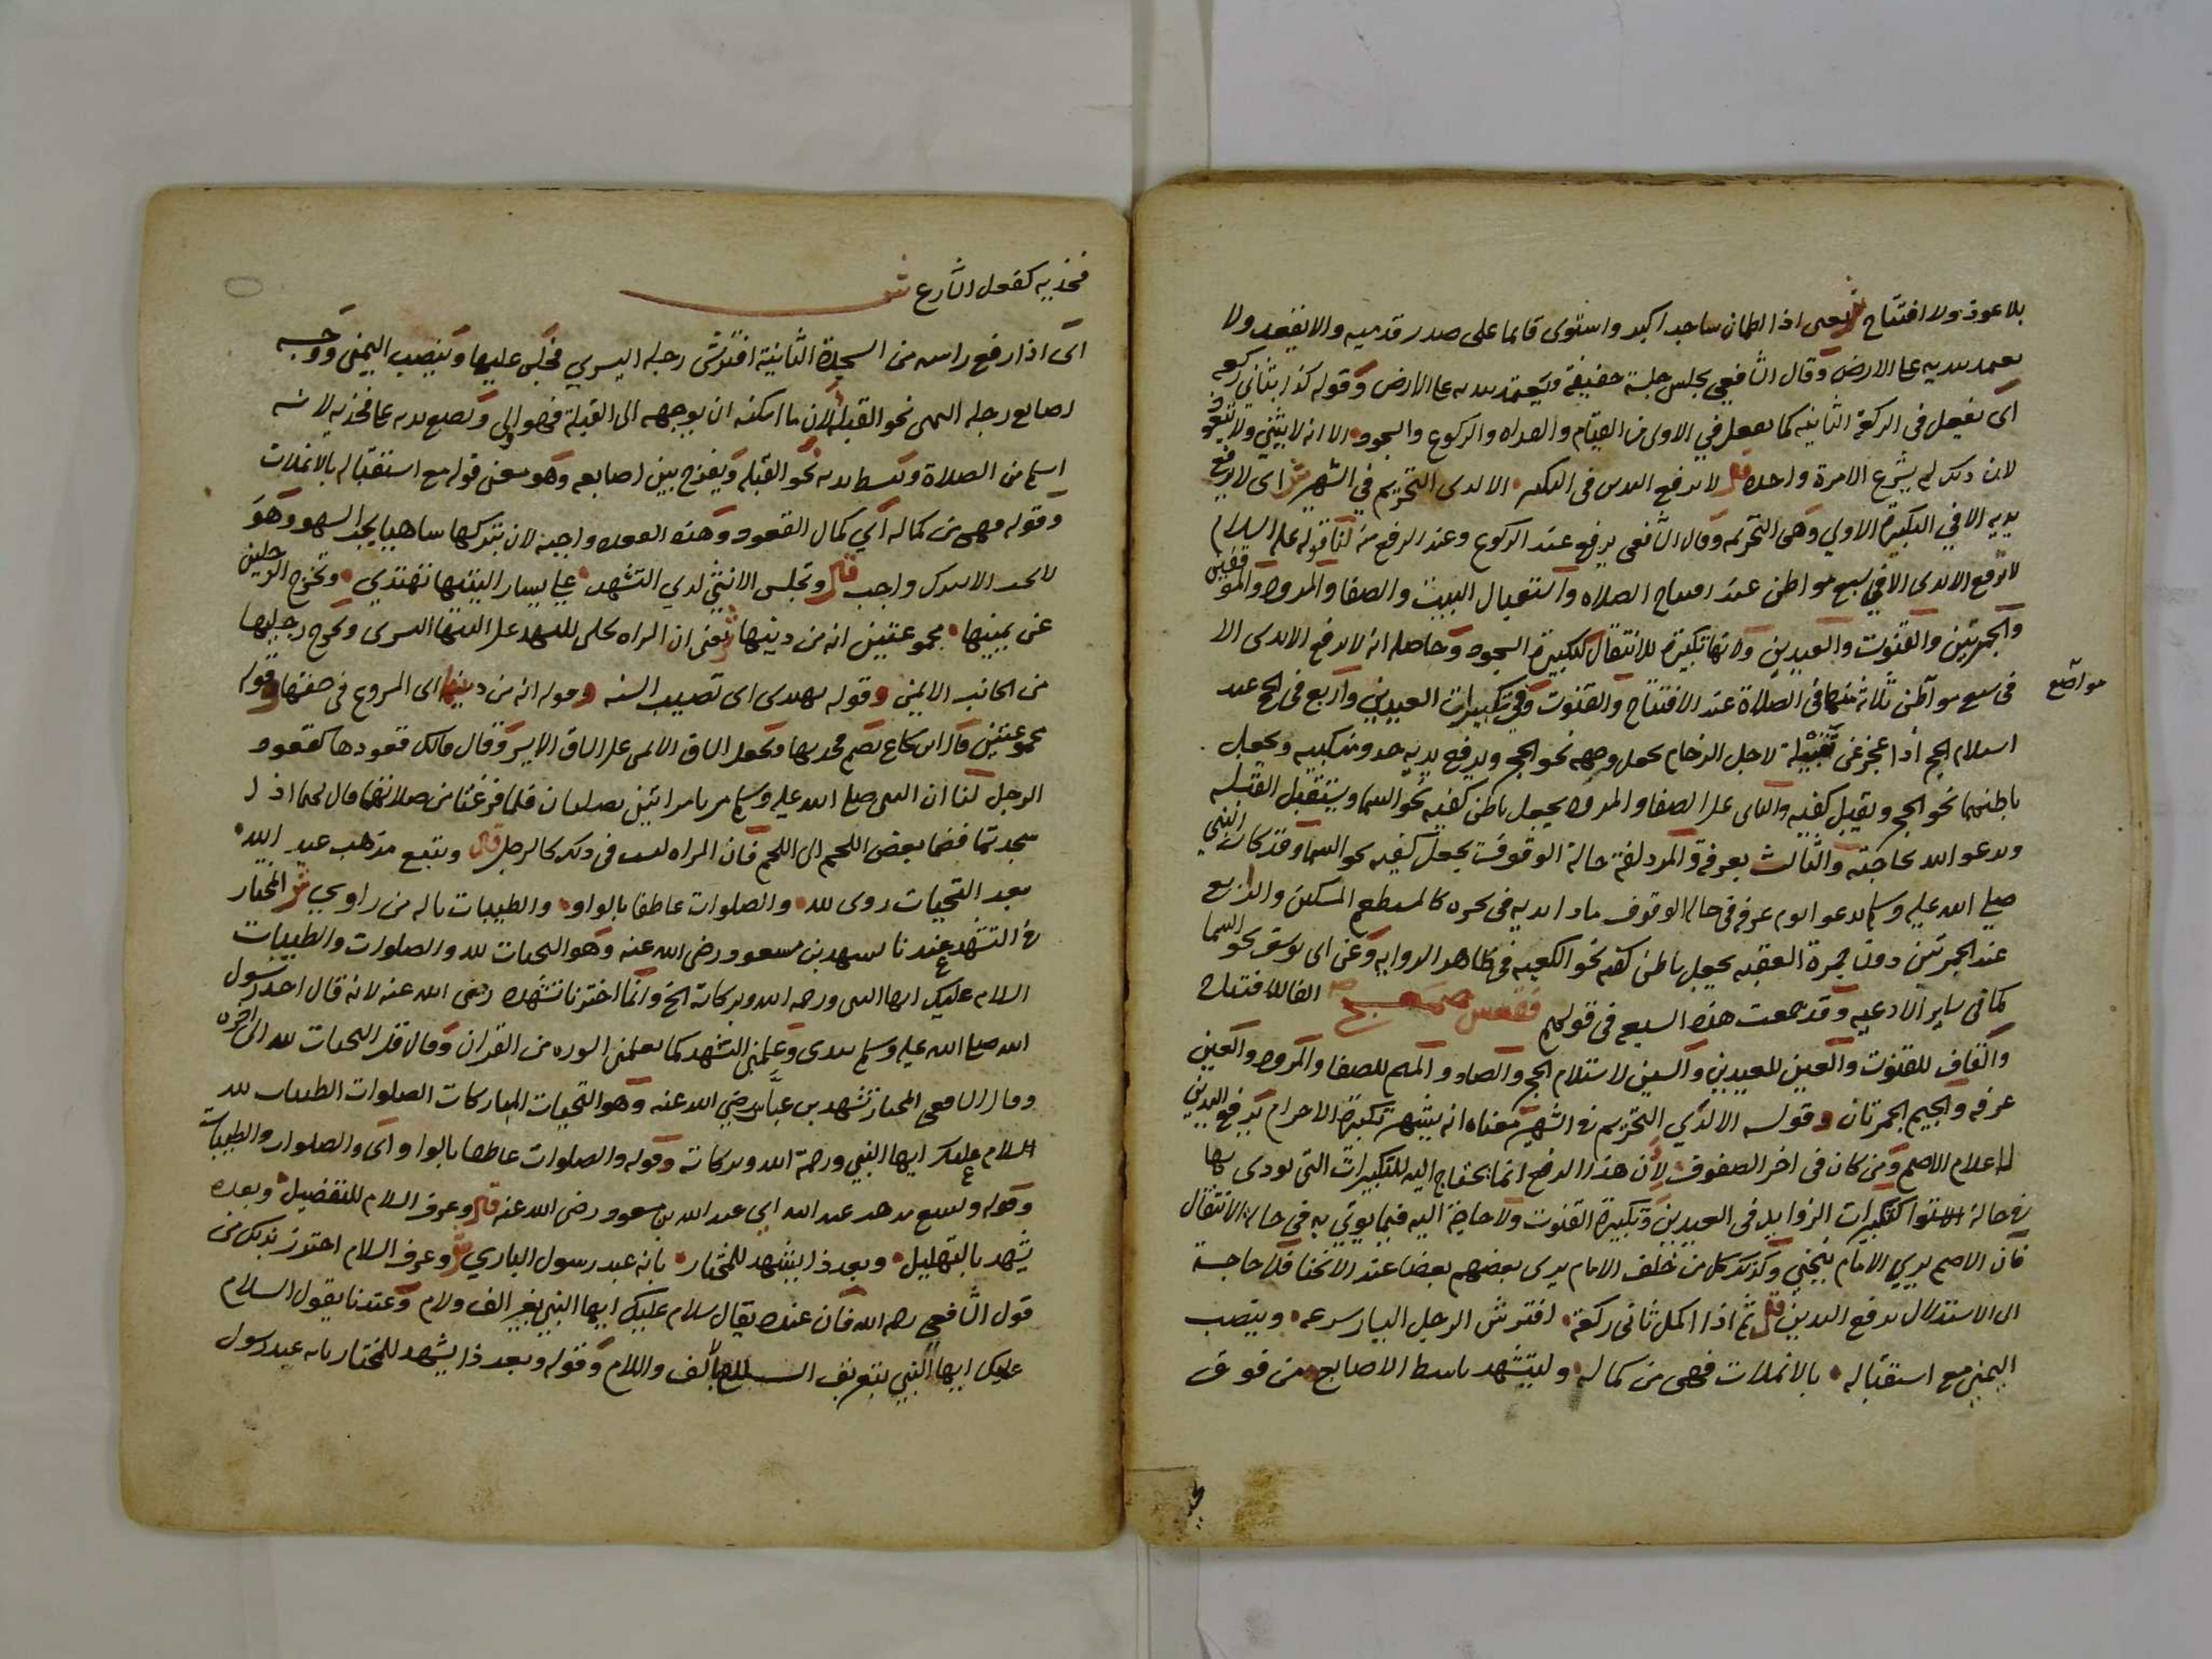 بلا عوذ ولا افتتاح ش يعني اذا اطمان ساجدا كبر واستوى قايما على صدر قدميه ولا يقعد ولا
يعتمد بيديه على الارض وقال الشافعي يجلس جلسة خفيفة ويعتمد بيديه على الارض وقوله كذا بثاني ركعه
اى يفعل في الركعة الثانيه كما يفعل في الاولى من القيام والقراه والركوع والسجود الا انه لا يثني ولا يتعوذ
لان ذلك لم يشرع الا مرة واحدة قال لا ترفع اليدين في التكبير الا لدى التحريم في الشهير ش اى لا يرفع
يديه الا في التكبيرة الاولي وهى التحريمه وقال الشافعى يرفع عند الركوع وعند الرفع منه لنا قوله عليه السلام
لا ترفع الايدى الا في سبع مواطن عند افتتاح الصلاه واستقبال البيت والصفا والمروه والموقفين
والجمرتين والقنوت والعيدين ولانها تكبيرة للانتقال كتكبيرة السجود وحاصله انه لا يرفع الايدى الا
مواضع
في سبع مواطن ثلاثة منها في الصلاة عند الافتتاح والقنوت وفي تكبيرات العيدين واربع في الحج عند
استلام الحجر اذا عجز عن تقبيله لاجل الزحام يجعل وجهه نحو الحجر ويرفع يديه حذو منكبيه ويجعل
باطنهما نحو الحجر ويقبل كفيه والثانى على الصفا والمروه يجعل باطن كفيه نحو السما ويستقبل القبله
ويدعو الله بحاجته والثالث بعرفة والمزدلفة حالة الوقوف يجعل كفيه نحو السما وقد كان النبي
صلى الله عليه وسلم يدعو يوم عرفه في حالة الوقوف مادا يديه في نحره كالمستطعم المسكين والرابع
عند الجمرتين دون جمرة العقبه يجعل باطن كفه نحو الكعبه في ظاهر الروايه وعن ابي يوسف نحو السما
كما في ساير الادعيه وقد جمعت هذه السبع في قولهم فقعس صمعج الفا للافتتاح
والقاف للقنوت والعين للعيدين والسين لاستلام الحجر والصاد والميم للصفا والمروه والعين
عرفه والجيم الجمرتان وقوله الا لدي التحريم في الشهير معناه انه يشهر تكبيرة الاحرام برفع اليدين
لاعلام الاصم ومن كان في اخر الصفوف لان هذا الرفع انما يحتاج اليه للتكبيرات التى يودى بها
في حالة الاستوا كتكبيرات الزوايد في العيدين وتكبيرة القنوت ولا حاجة اليه فيما يوتي به في حالة الانتقال
فان الاصم يري الامام ينحني وكذلك كل من خلف الامام يرى بعضهم بعضا عند الانحنا فلا حاجة
الى الاستدلال برفع اليدين قال ثم اذا اكمل ثاني ركعة افترش الرجل اليسار سرعه وينصب
اليمنى مع استقباله بالانملات فهي من كماله وليتشهد باسط الاصابع من فوق
فخذيه كفعل الشارع ش
اى اذا رفع راسه من السجدة الثانية افترش رجله اليسري فجلس عليها وينصب اليمنى ووجه
اصابع رجله اليمنى نحو القبلة لان ما امكنه ان يوجهه الى القبلة فهو اولى ويضع يديه على فخذيه لانه
اسلم من الصلاة ويبسط يديه نحو القبله ويفرج بين اصابعه وهو معنى قوله مع استقباله بالانملات
وقوله فهي من كماله اي كمال القعود وهذه القعده واجبه لان بتركها ساهيا يجب السهو وهو
لا يجب الا بترك واجب قال وتجلس الانثى لدي التشهد على يسار اليتيها تهتدي وتخرج الرجلين
عن يمينها مجموعتين انه من دينها ش يعنى ان المراه تجلس للتشهد على اليتها اليسرى وتخرج رجليها
من الجانب الايمن وقوله تهتدى اى تصيب السنه وقوله انه من دينها اى المروع في صفتها وقوله
مجموعتين قال ابن شجاع تضم فخديها وتجعل الساق الايمن على الساق الايسر وقال مالك قعودها كقعود
الرجل لنا ان النبى صلى الله عليه وسلم مر بامراتين تصليان فلما فرغتا من صلاتهما قال لهما اذا
سجدتما فضما بعض اللحم الى اللحم فان المراه ليست في ذلك كالرجل قال ويتبع مذهب عبد الله
بعد التحيات روى لله والصلوات عاطفا بالواو والطيبات باله من راوي ش المختار
في التشهد عندنا تشهد بن مسعود رضى الله عنه وهو التحيات لله والصلوات والطيبات
السلام عليك ايها النبى ورحمه الله وبركاته الخ وانما اخترنا تشهده رضى الله عنه لانه قال اخذ رسول
الله صلى الله عليه وسلم بيدى وعلمنى التشهد كما يعلمنى السوره من القران وقال قل التحيات لله الى اخره
وقال الشافعى المختار تشهد بن عباس رضي الله عنه وهو التحيات المباركات الصلوات الطيبات لله
السلام عليك ايها النبي ورحمة الله وبركاته وقوله والصلوات عاطفا بالواو اى والصلوات والطيبات
وقوله ويتبع مذهب عبد الله اى عبد الله بن مسعود رضى الله عنه قال وعرف السلام للتفضيل وبعده
يشهد بالتهليل وبعد ذا يشهد للمختار بانه عبد رسول الباري ش وعرف السلام احترز بذلك من
قول الشافعي رحمه الله فان عنده يقال سلام عليك ايها النبي بغير الف ولام وعندنا يقول السلام
عليك ايها النبي بتعريف السلام بالف واللام وقوله وبعد ذا يشهد للمختار بانه عبد رسول